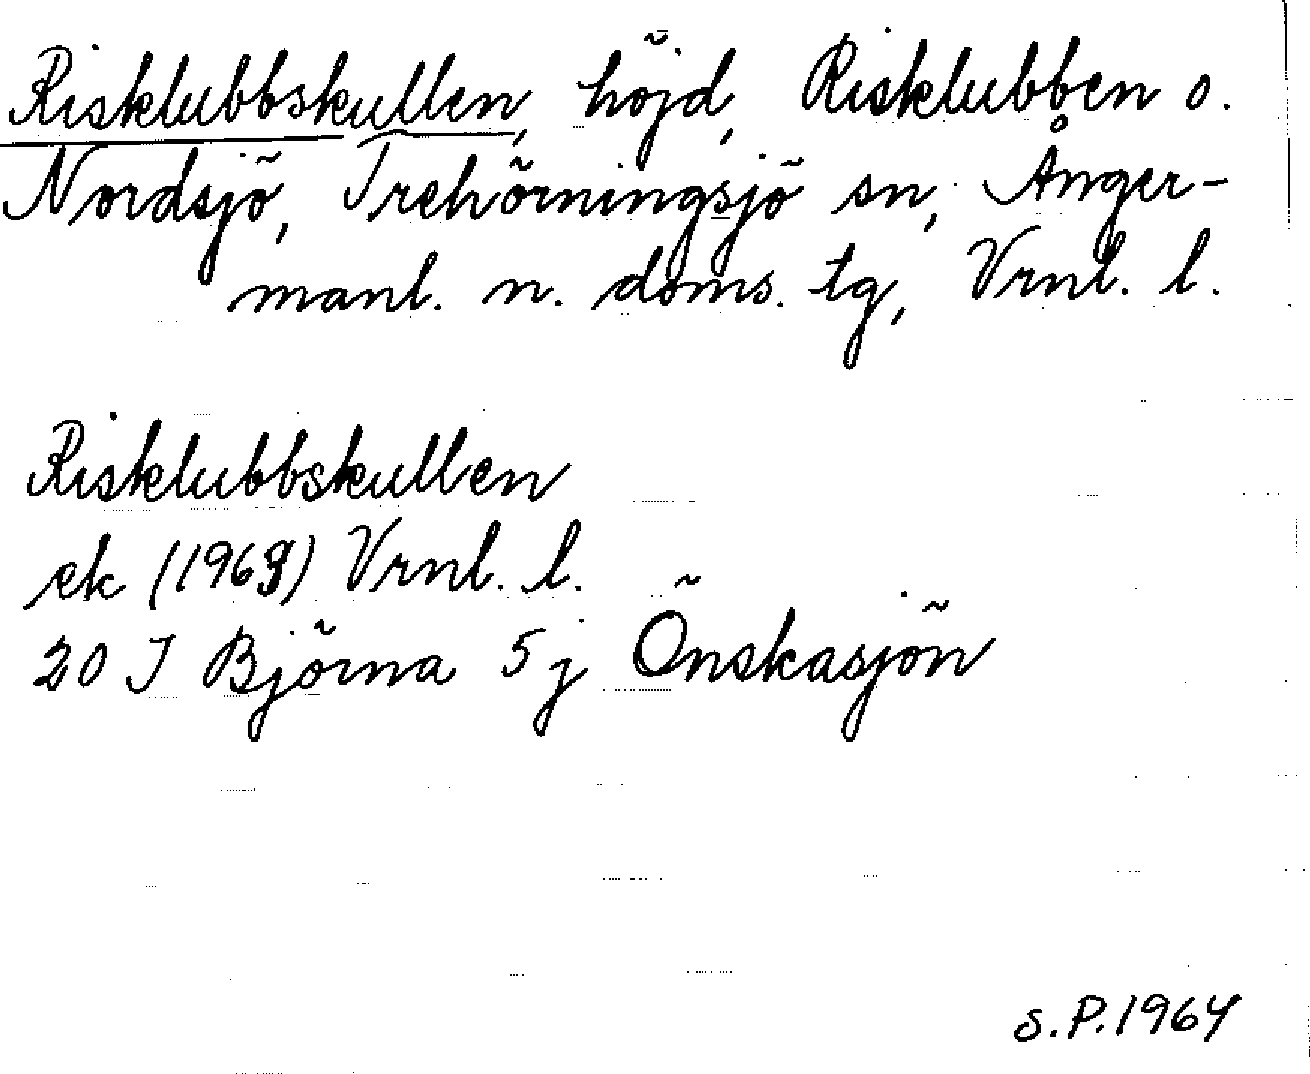 Risklubbskullen, höjd, Risklubben o.
Nordsjö, Trehörningsjö sn, Ånger-
manl. n. doms. tg, Vrnl. l.
Risklubbskullen
ek (1969) Vrnl. l.
20 I Björna 5 j Önskasjön
S.P. 1964